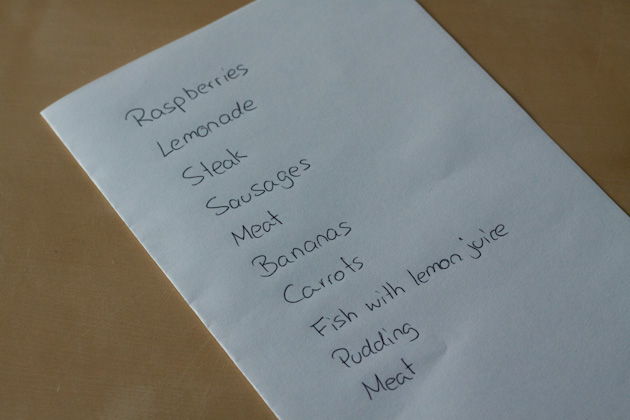 Raspberries
Lemonade
Steak
Sausages
Meat
Bananas
Carrots
Fish with lemon juice
Pudding
Meat